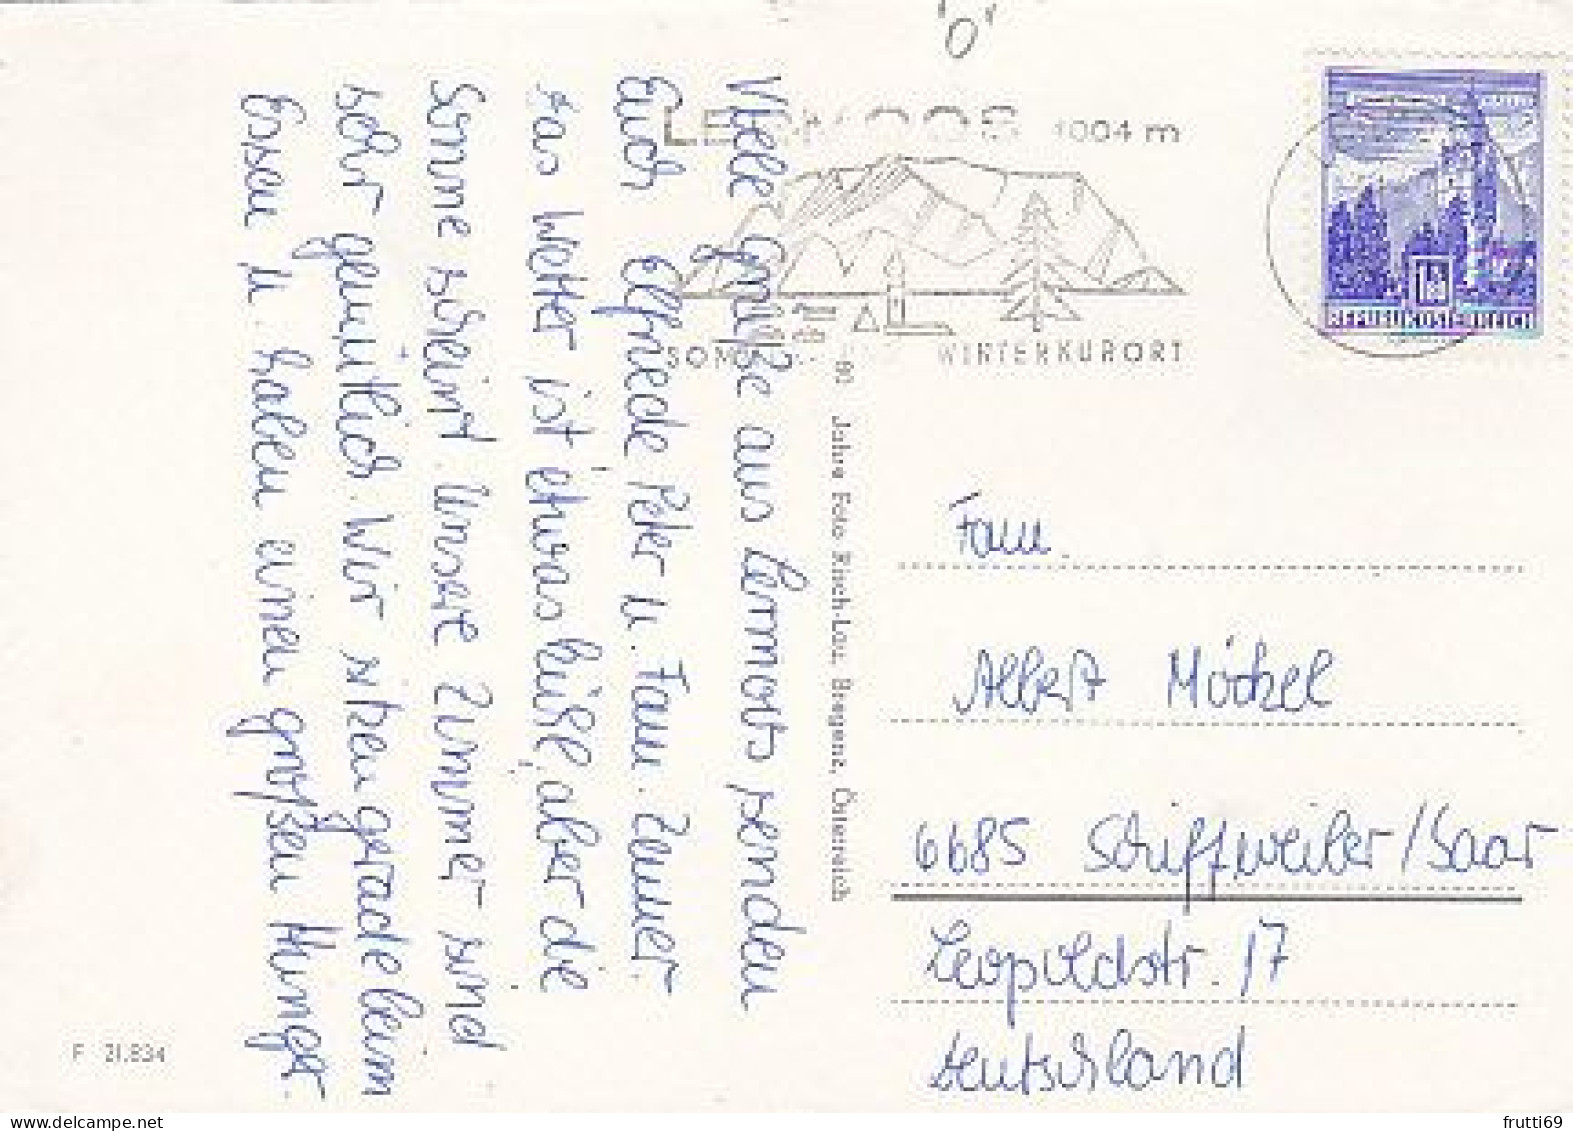 '0'
LERMOOS 1004 m
WINTERKURORT
REPUBLIK ÖSTERREICH
Viele Grüße aus Lermoos senden
Euch Elfriede Peter u. Fam. Zewer.
Das Wetter ist etwas kühl, aber die
Sonne scheint. Unsere Zimmer sind
sehr gemütlich. Wir sitzen gerade beim
Essen u. haben einen großen Hunger
Jahre Foto Risch-Lau, Bregenz, Österreich
Fam.
Albert Möckel
6685 Schiffweiler/Saar
Leopoldstr. 17
Deutschland
F 21.834
frutti69